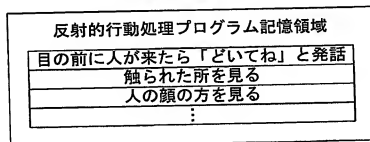 反射的行動処理プログラム記憶領域
目の前に人が来たら「どいてね」と発話
触られた所を見る
人の顔の方を見る
⋮